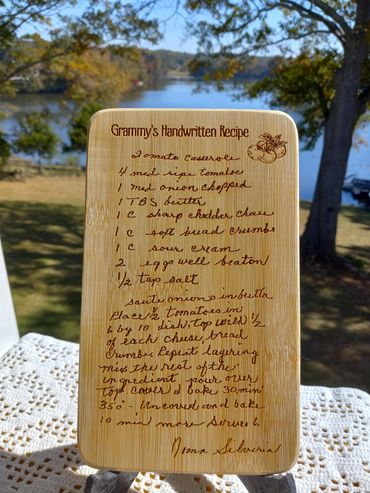 Grammy's Handwritten Recipe
Tomato Casserole
4 med ripe tomatoes
1 med onion chopped
1 TBS butter
1 C sharp cheddar cheese
1 C soft bread crumbs
1 C sour cream
2 eggs well beaton
1/2 tsp salt
saute onions in butter
Place 1/2 tomatoes in
6 by 10 dish, top with 1/2
of each cheese, bread
crumbs. Repeat layering
mix the rest of the
ingredient pour over
top cover & bake 30 min
350° - Uncover and bake
10 min more serves 6
Noma Silveria